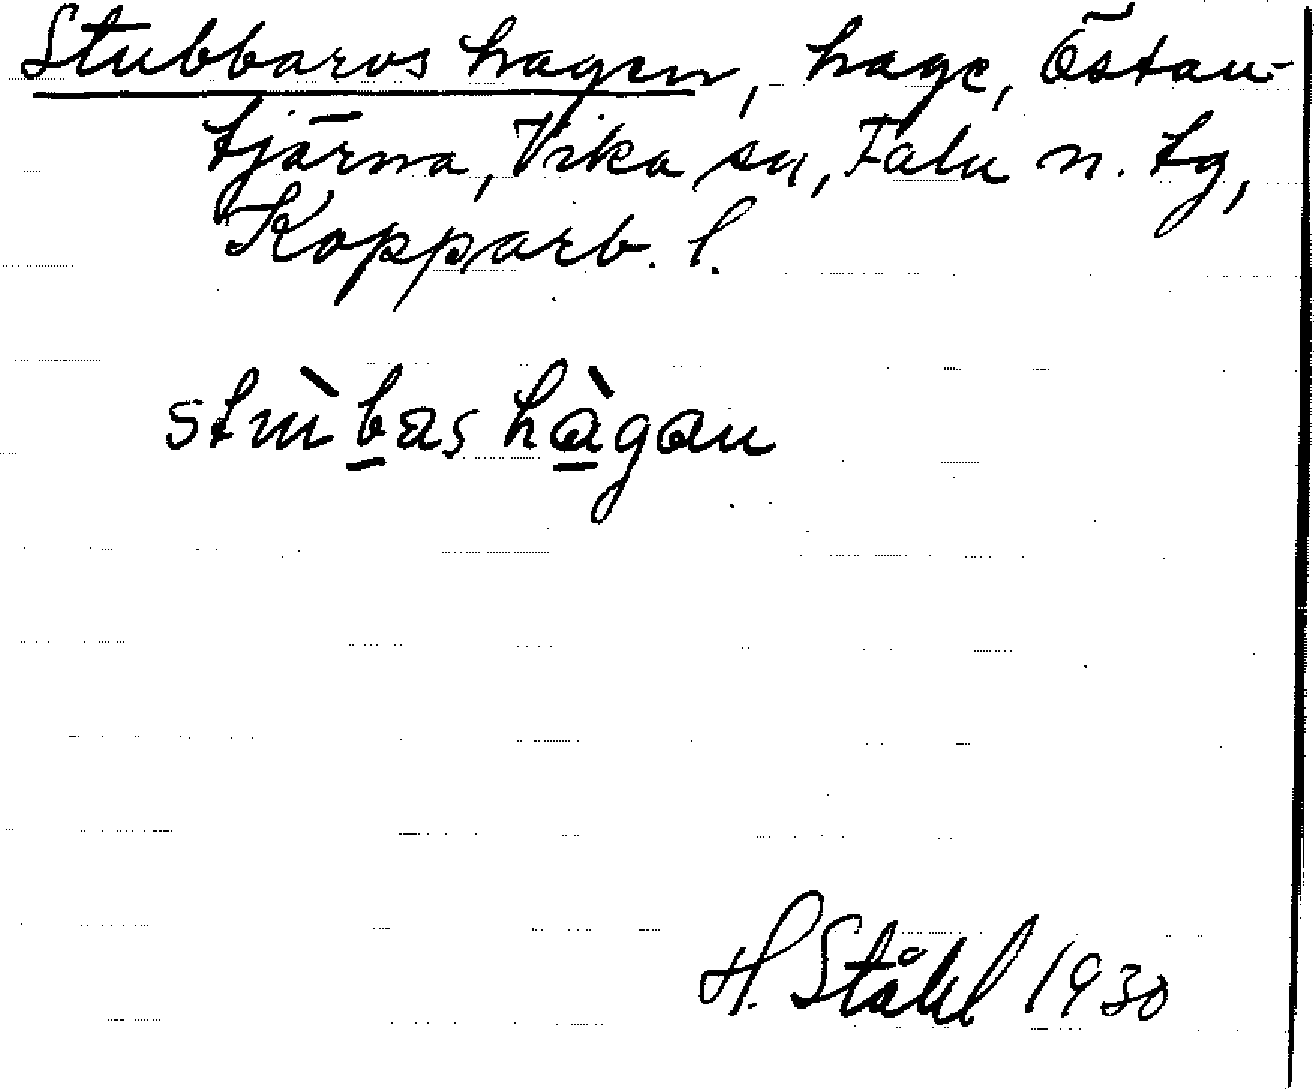 Stubbaros hagen, hage, Östan-
tjärna, Vika sn, Falu n. tg,
Kopparb. l.
stùbas hàgan
H. Ståhl 1930